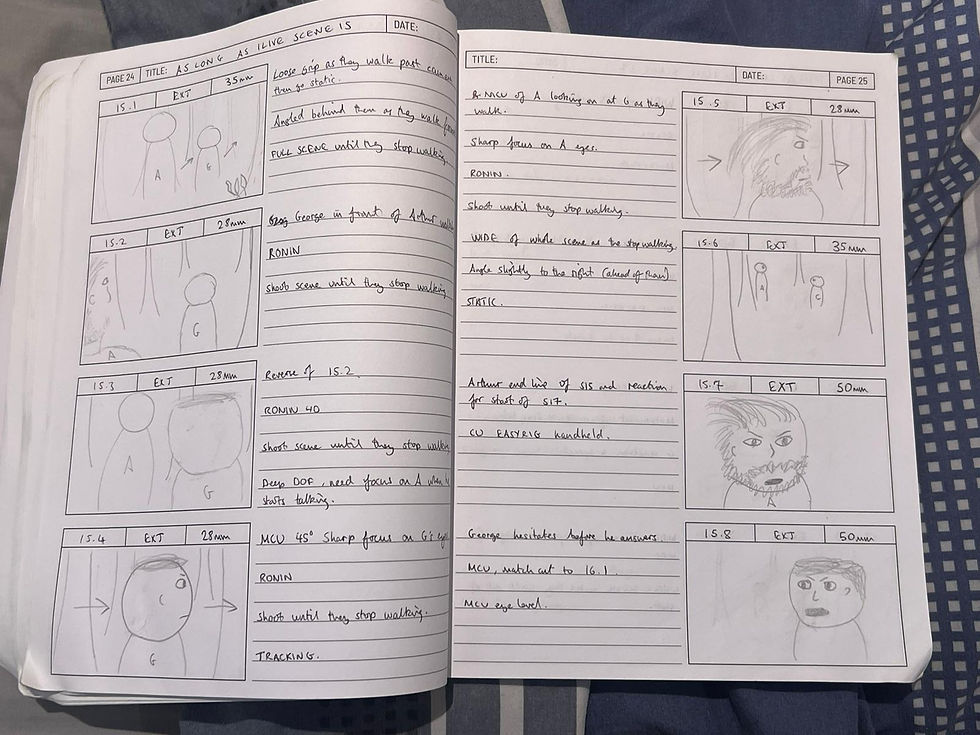 PAGE 24 TITLE: AS LONG AS I LIVE SCENE 15 DATE:
15.1 EXT 35mm
Loose grip as they walk past camera
then go static.
Angled behind them as they walk
FULL SCENE until they stop walking.
A G
15.2 EXT 28mm
George in front of Arthur
RONIN
shoot scene until they stop walking
A G
15.3 EXT 28mm
Reverse of 15.2
RONIN 40
shoot scene until they stop walking
Deep DOF, need focus on A when
starts talking.
A G
15.4 EXT 28mm
MCU 45° Sharp focus on G's
RONIN
shoot until they stop walking.
TRACKING.
G
TITLE:
DATE: PAGE 25
15.5 EXT 28mm
MCU of A looking on at G as they
walk.
Sharp focus on A eyes.
RONIN.
Shoot until they stop walking.
15.6 EXT 35mm
WIDE of whole scene as the stop walking.
Angle slightly to the right (ahead of them)
STATIC.
A G
15.7 EXT 50mm
Arthur end line of S15 and reaction
for start of S17.
CU EASYRIG handheld.
A
15.8 EXT 50mm
George hesitates before he answers.
MCU, match cut to 16.1.
MCU eye level.